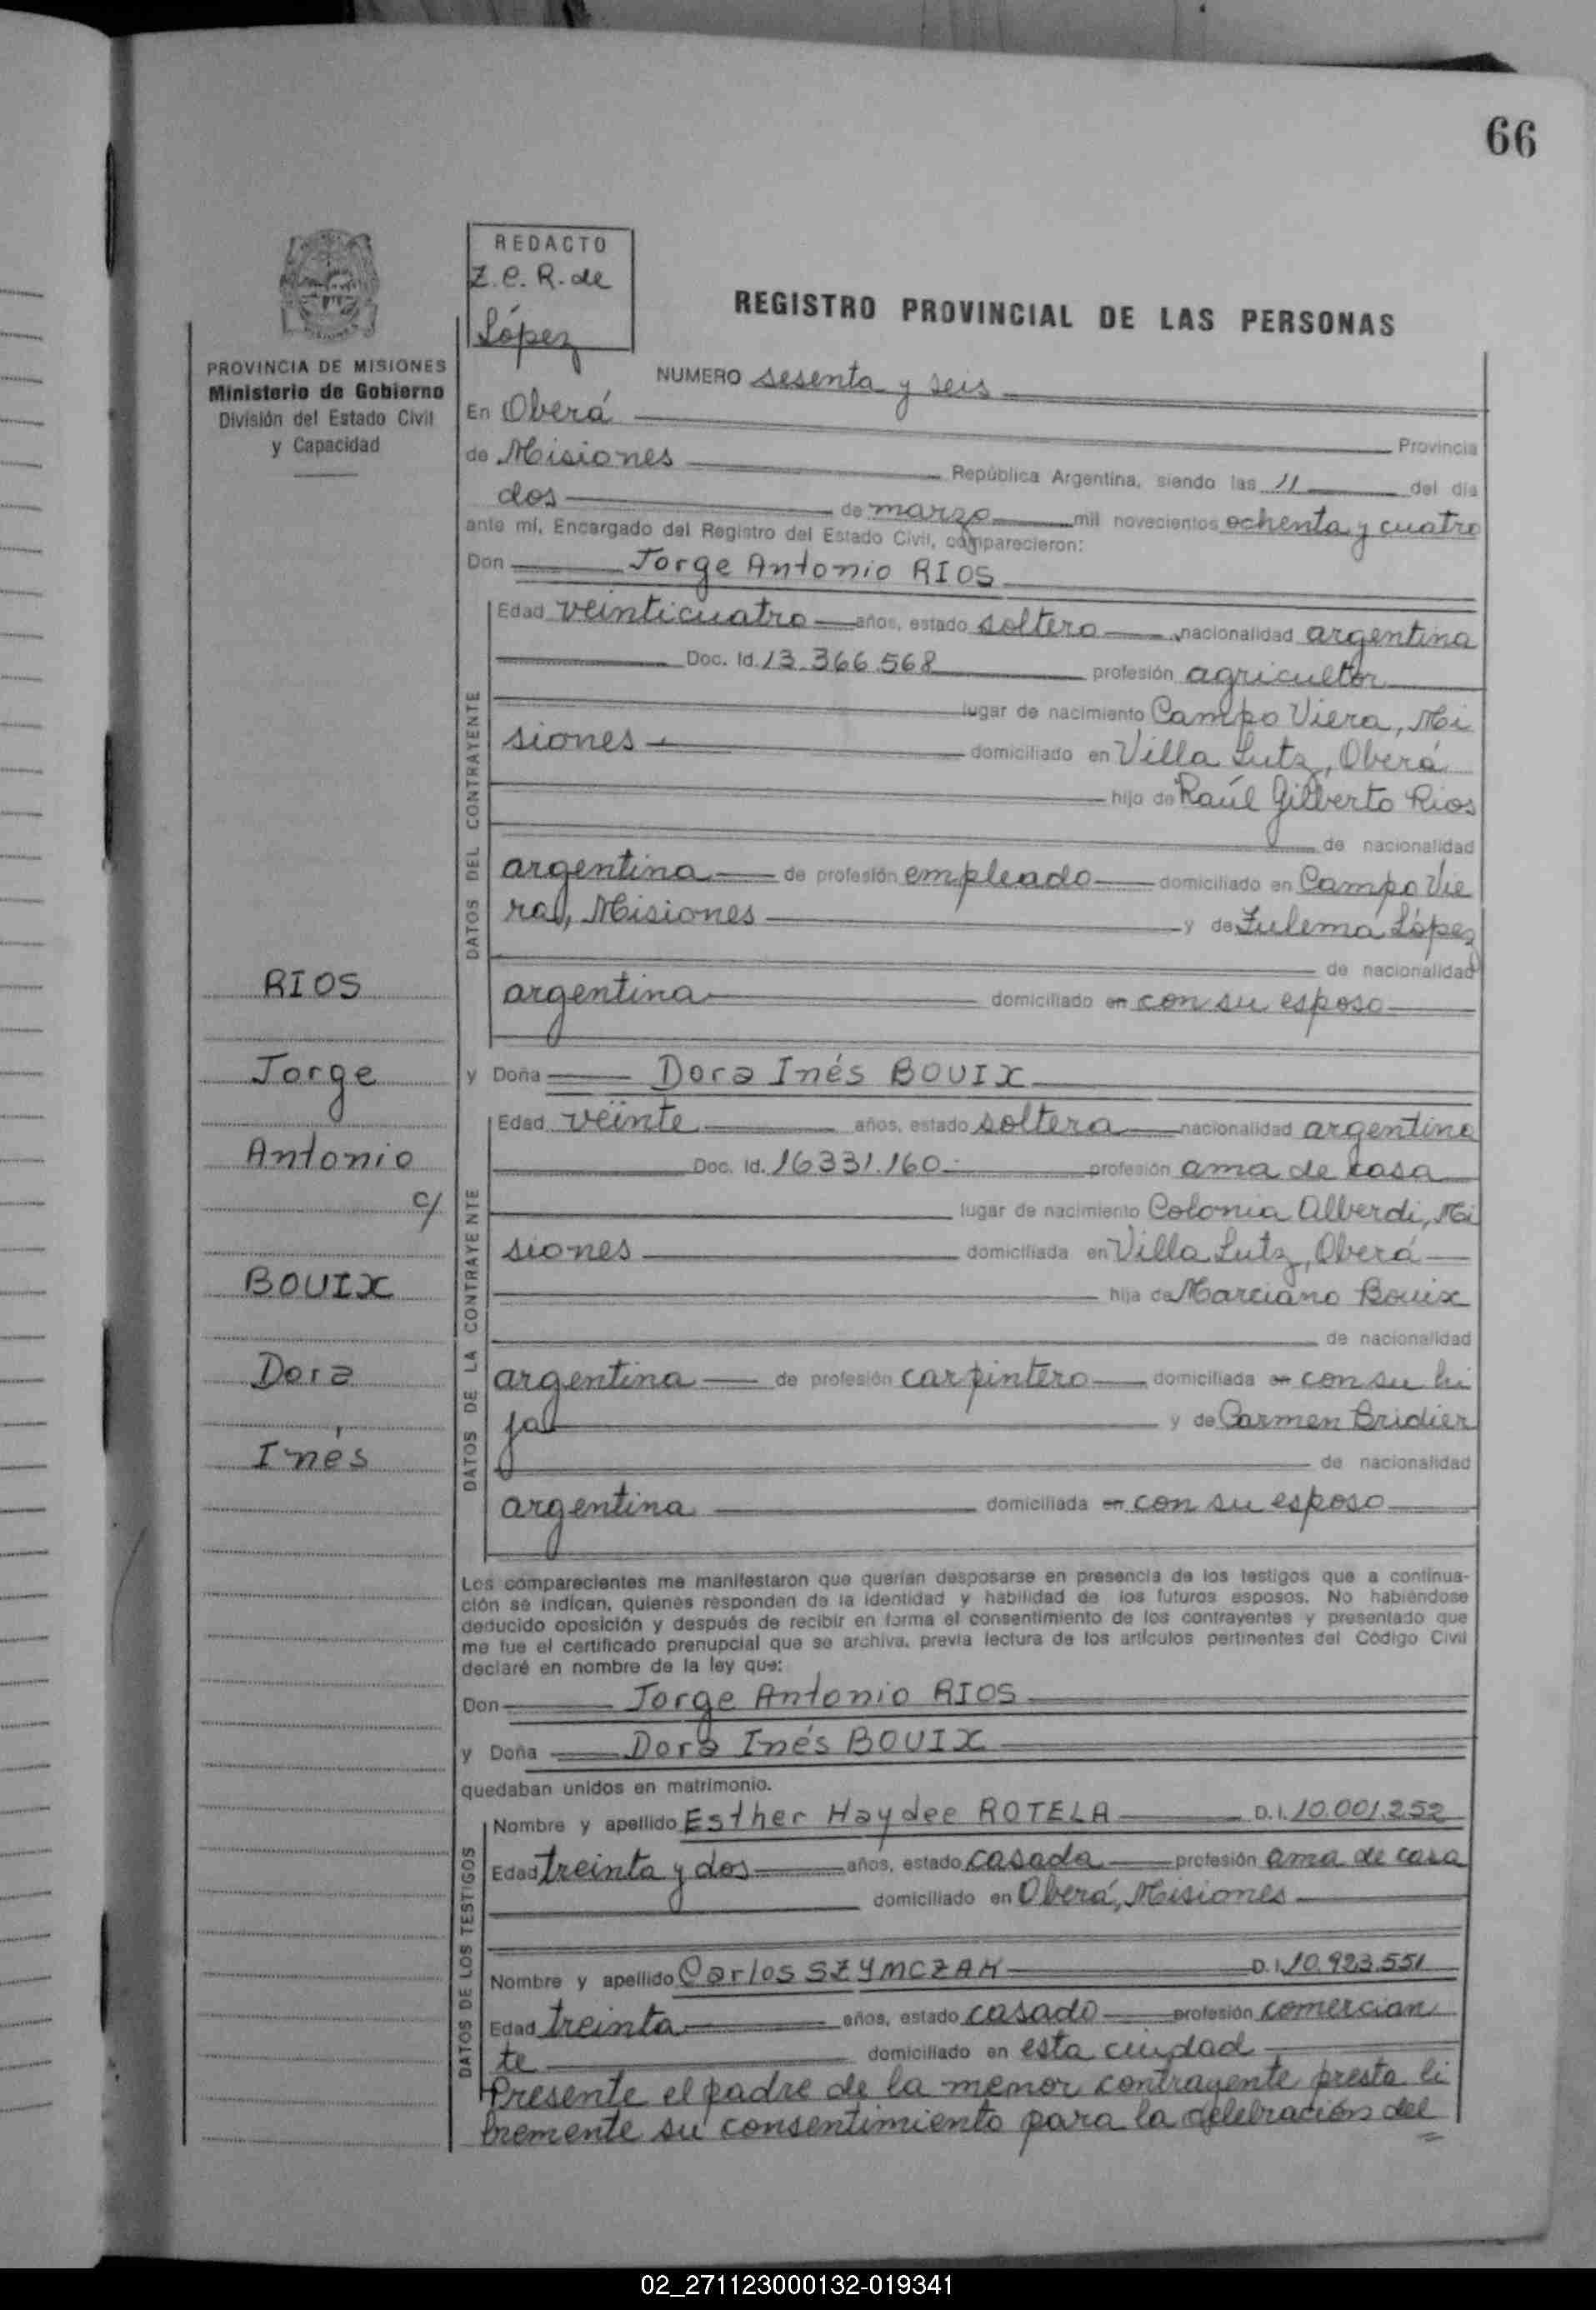 66
REDACTO
Z.C.R. de
López
REGISTRO PROVINCIAL DE LAS PERSONAS
PROVINCIA DE MISIONES
Ministerio de Gobierno
División del Estado Civil
y Capacidad
NUMERO sesenta y seis
En Oberá Provincia
de Misiones República Argentina, siendo las 11 del día
dos de marzo mil novecientos ochenta y cuatro
ante mí, Encargado del Registro del Estado Civil, comparecieron:
Don Jorge Antonio RIOS
DATOS DEL CONTRAYENTE
Edad veinticuatro años, estado soltero nacionalidad argentina
Doc. Id. 13.366.568 profesión agricultor
lugar de nacimiento Campo Viera, Mi
siones domiciliado en Villa Lutz, Oberá
hijo de Raúl Gilberto Rios
de nacionalidad
argentina de profesión empleado domiciliado en Campo Vie
ra, Misiones y de Zulema López
de nacionalidad
argentina domiciliado en con su esposo
RIOS
Jorge
Antonio
c/
BOUIX
Dora
Inés
y Doña Dora Inés BOUIX
DATOS DE LA CONTRAYENTE
Edad veinte años, estado soltera nacionalidad argentina
Doc. Id. 16331.160 profesión ama de casa
lugar de nacimiento Colonia Alberdi, Mi
siones domiciliada en Villa Lutz, Oberá
hija de Marciano Bouix
de nacionalidad
argentina de profesión carpintero domiciliada en con su hi
ja y de Carmen Bridier
de nacionalidad
argentina domiciliada en con su esposo
Los comparecientes me manifestaron que querían desposarse en presencia de los testigos que a continua-
ción se indican, quienes responden de la identidad y habilidad de los futuros esposos. No habiéndose
deducido oposición y después de recibir en forma el consentimiento de los contrayentes y presentado que
me fue el certificado prenupcial que se archiva, previa lectura de los artículos pertinentes del Código Civil
declaré en nombre de la ley que:
Don Jorge Antonio RIOS
y Doña Dora Inés BOUIX
quedaban unidos en matrimonio.
DATOS DE LOS TESTIGOS
Nombre y apellido Esther Haydee ROTELA D.I. 10.001.252
Edad treinta y dos años, estado casada profesión ama de casa
domiciliado en Oberá, Misiones
Nombre y apellido Carlos SZYMCZAK D.I. 10.923.551
Edad treinta años, estado casado profesión comercian
te domiciliado en esta ciudad
Presente el padre de la menor contrayente presta li
bremente su consentimiento para la celebración del
02_271123000132-019341